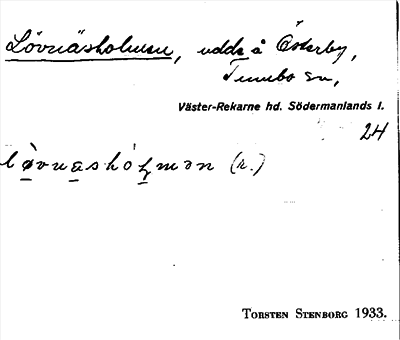 Lövnäsholmen, udde å Österby,
Tumbo sn,
Väster-Rekarne hd. Södermanlands l.
24
lø̀vnashólmən (r.)
Torsten Stenborg 1933.